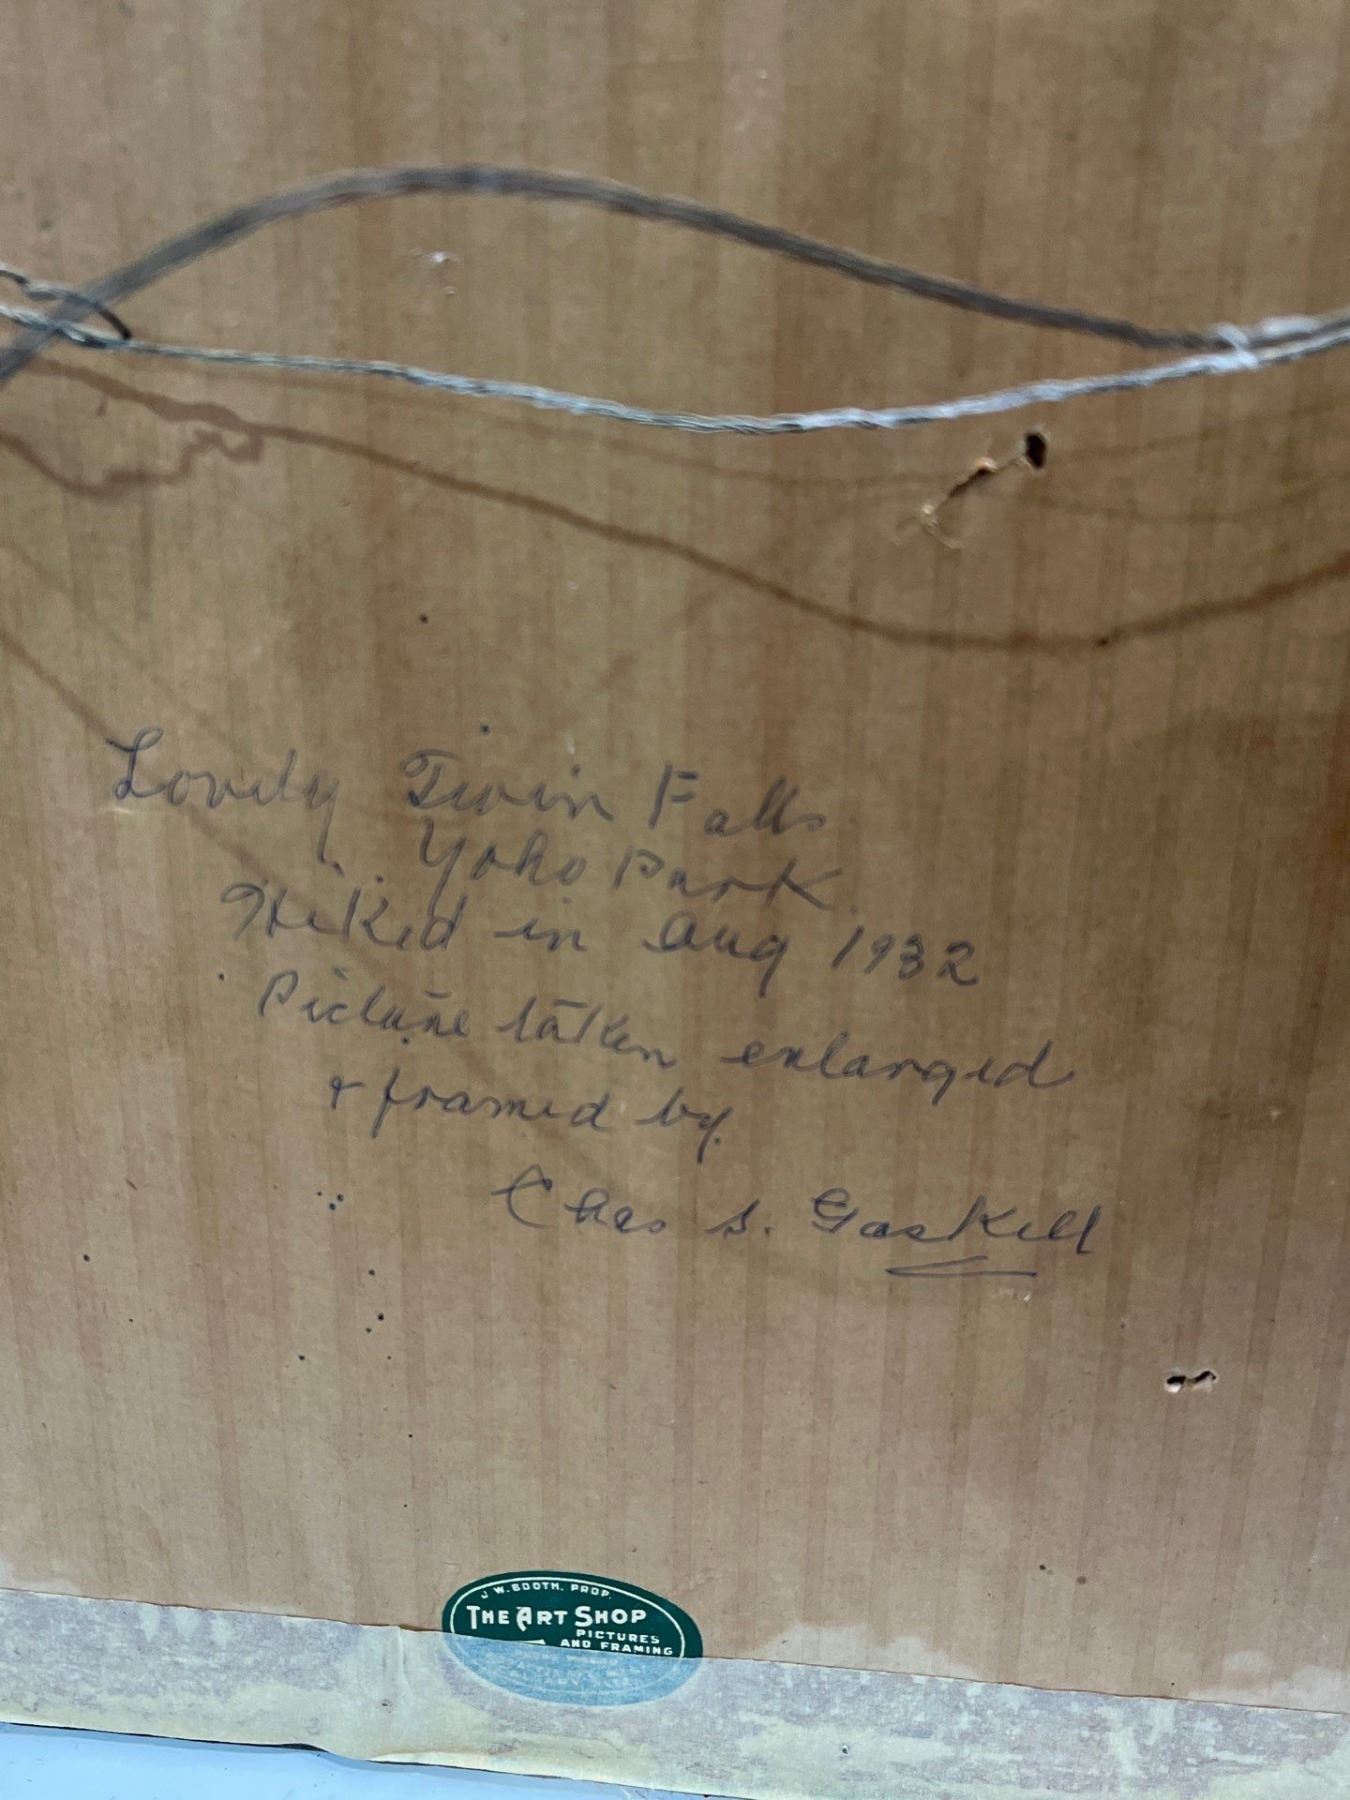 Lovely Twin Falls
Yoho Park.
Hiked in Aug 1932
Picture taken enlarged
& framed by
Chas S. Gaskill
J. W. BOOTH. PROP.
THE ART SHOP
PICTURES
AND FRAMING